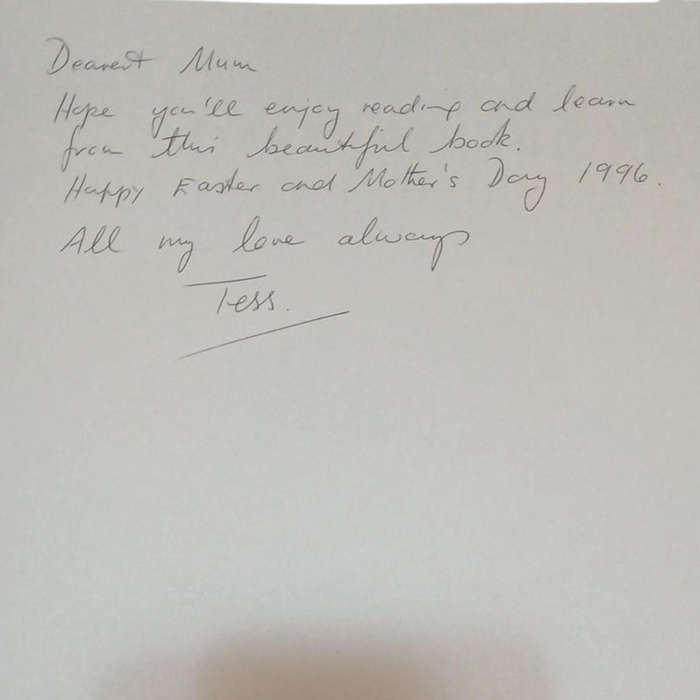 Dearest Mum
Hope you'll enjoy reading and learn
from this beautiful book.
Happy Easter and Mother's Day 1996.
All my love always
Tess.